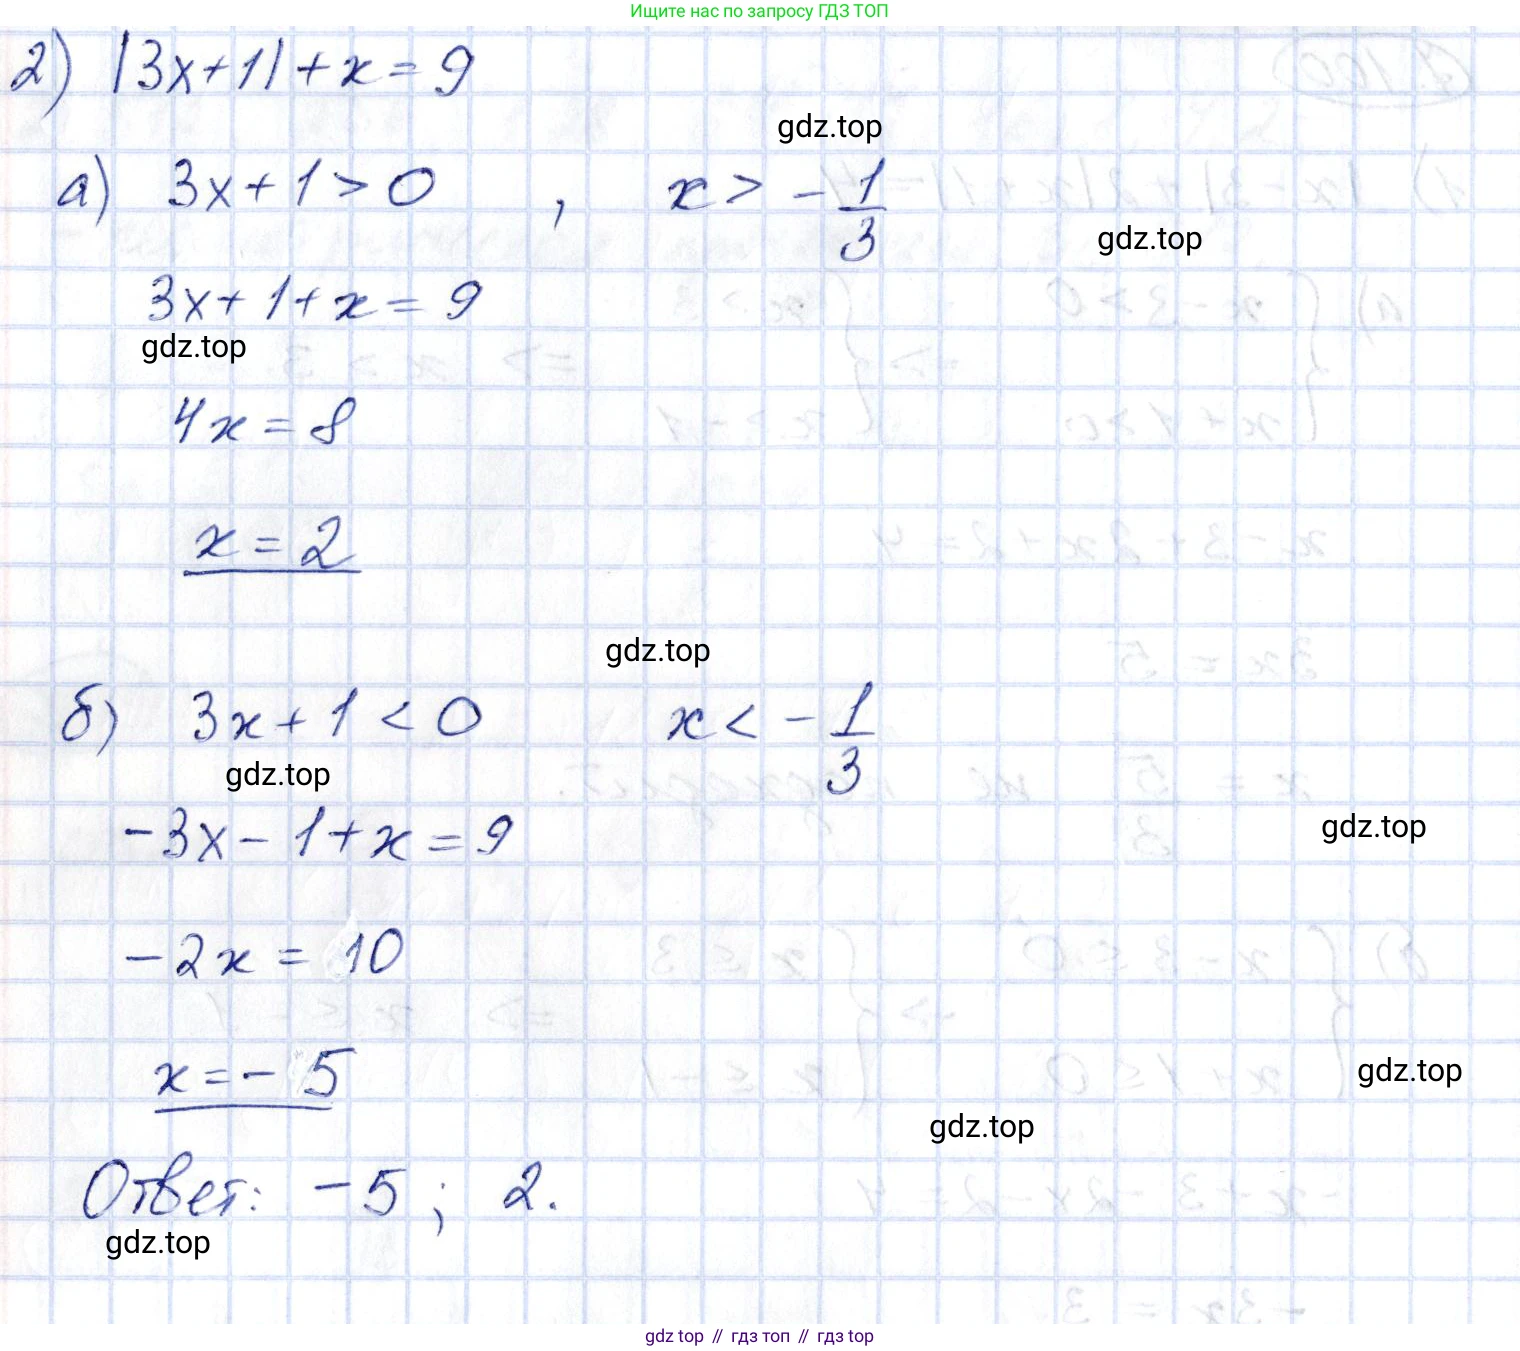 Ищите нас по запросу ГДЗ ТОП
2) |3x+1|+x=9
gdz.top
а) 3x+1>0 , x>-1/3
gdz.top
3x+1+x=9
gdz.top
4x=8
x=2
gdz.top
б) 3x+1<0 x<-1/3
gdz.top
-3x-1+x=9
gdz.top
-2x=10
x=-5
gdz.top
gdz.top
Ответ: -5; 2.
gdz.top
gdz top // гдз топ // гдз top